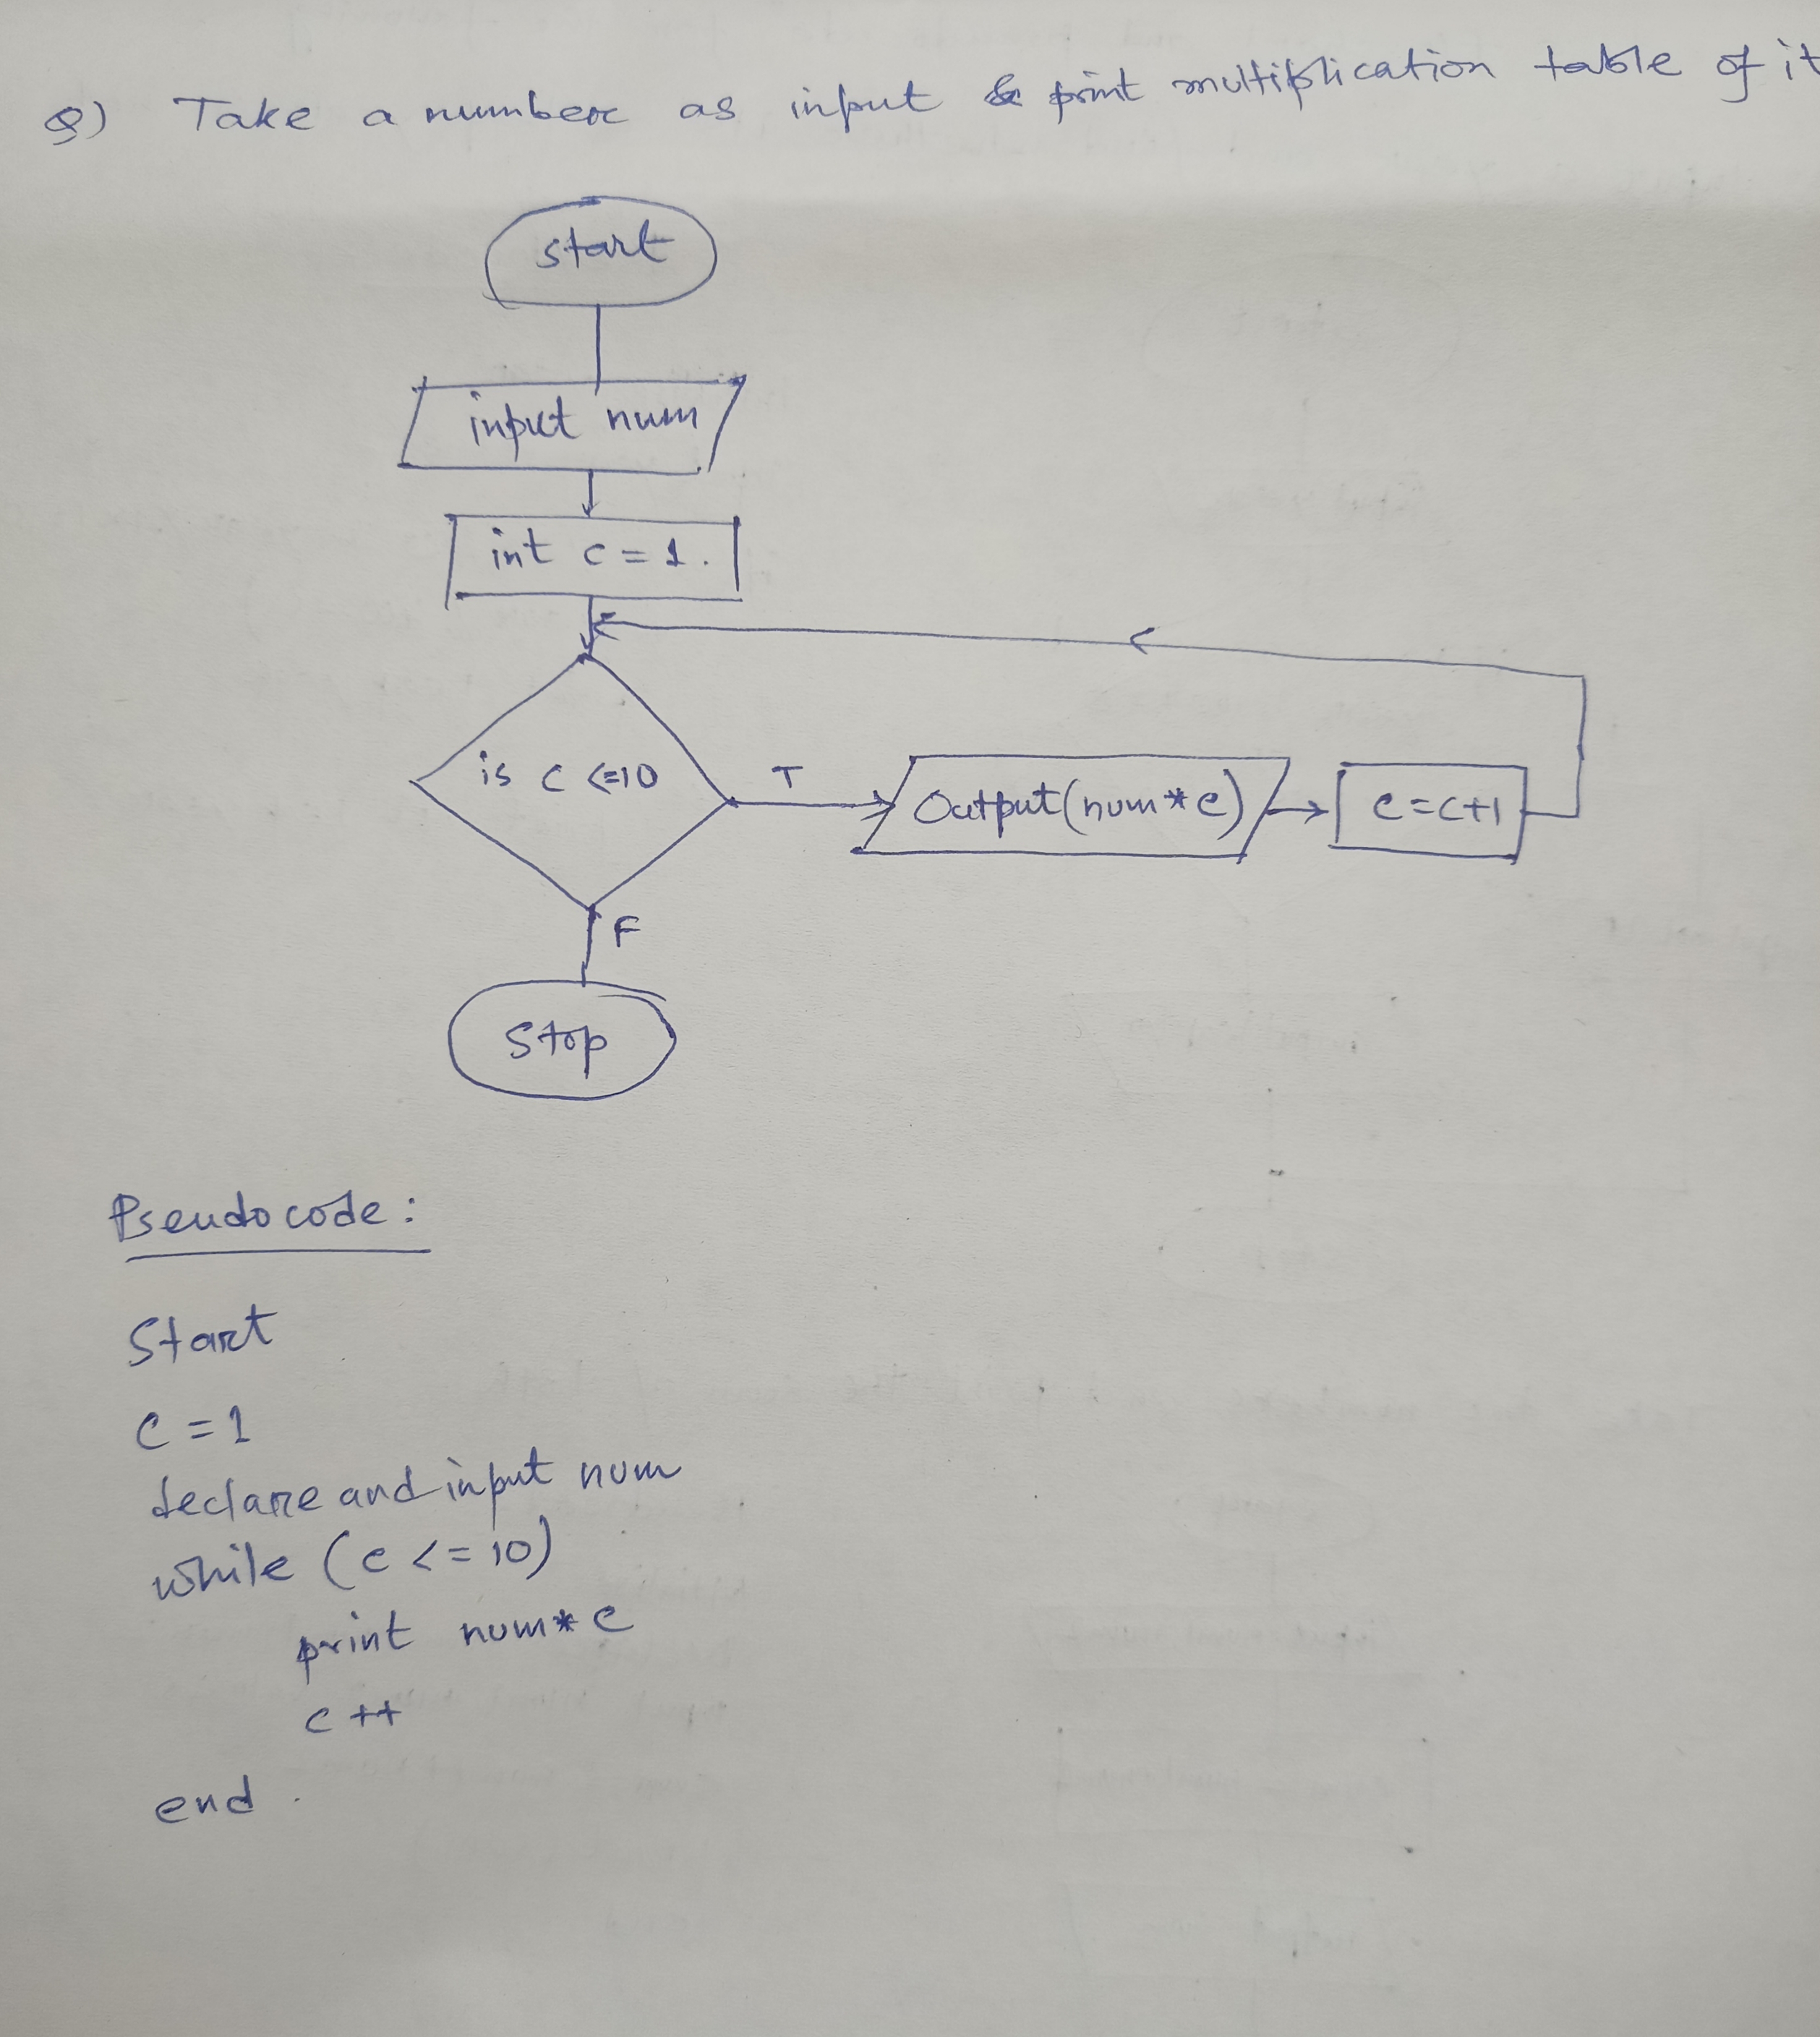 Q) Take a number as input & print multiplication table of it
start
input num
int c = 1.
is c <=10
T
Output(num*c)
c=c+1
F
Stop
Pseudocode:
Start
c = 1
declare and input num
while (c <= 10)
print num*c
c ++
end.